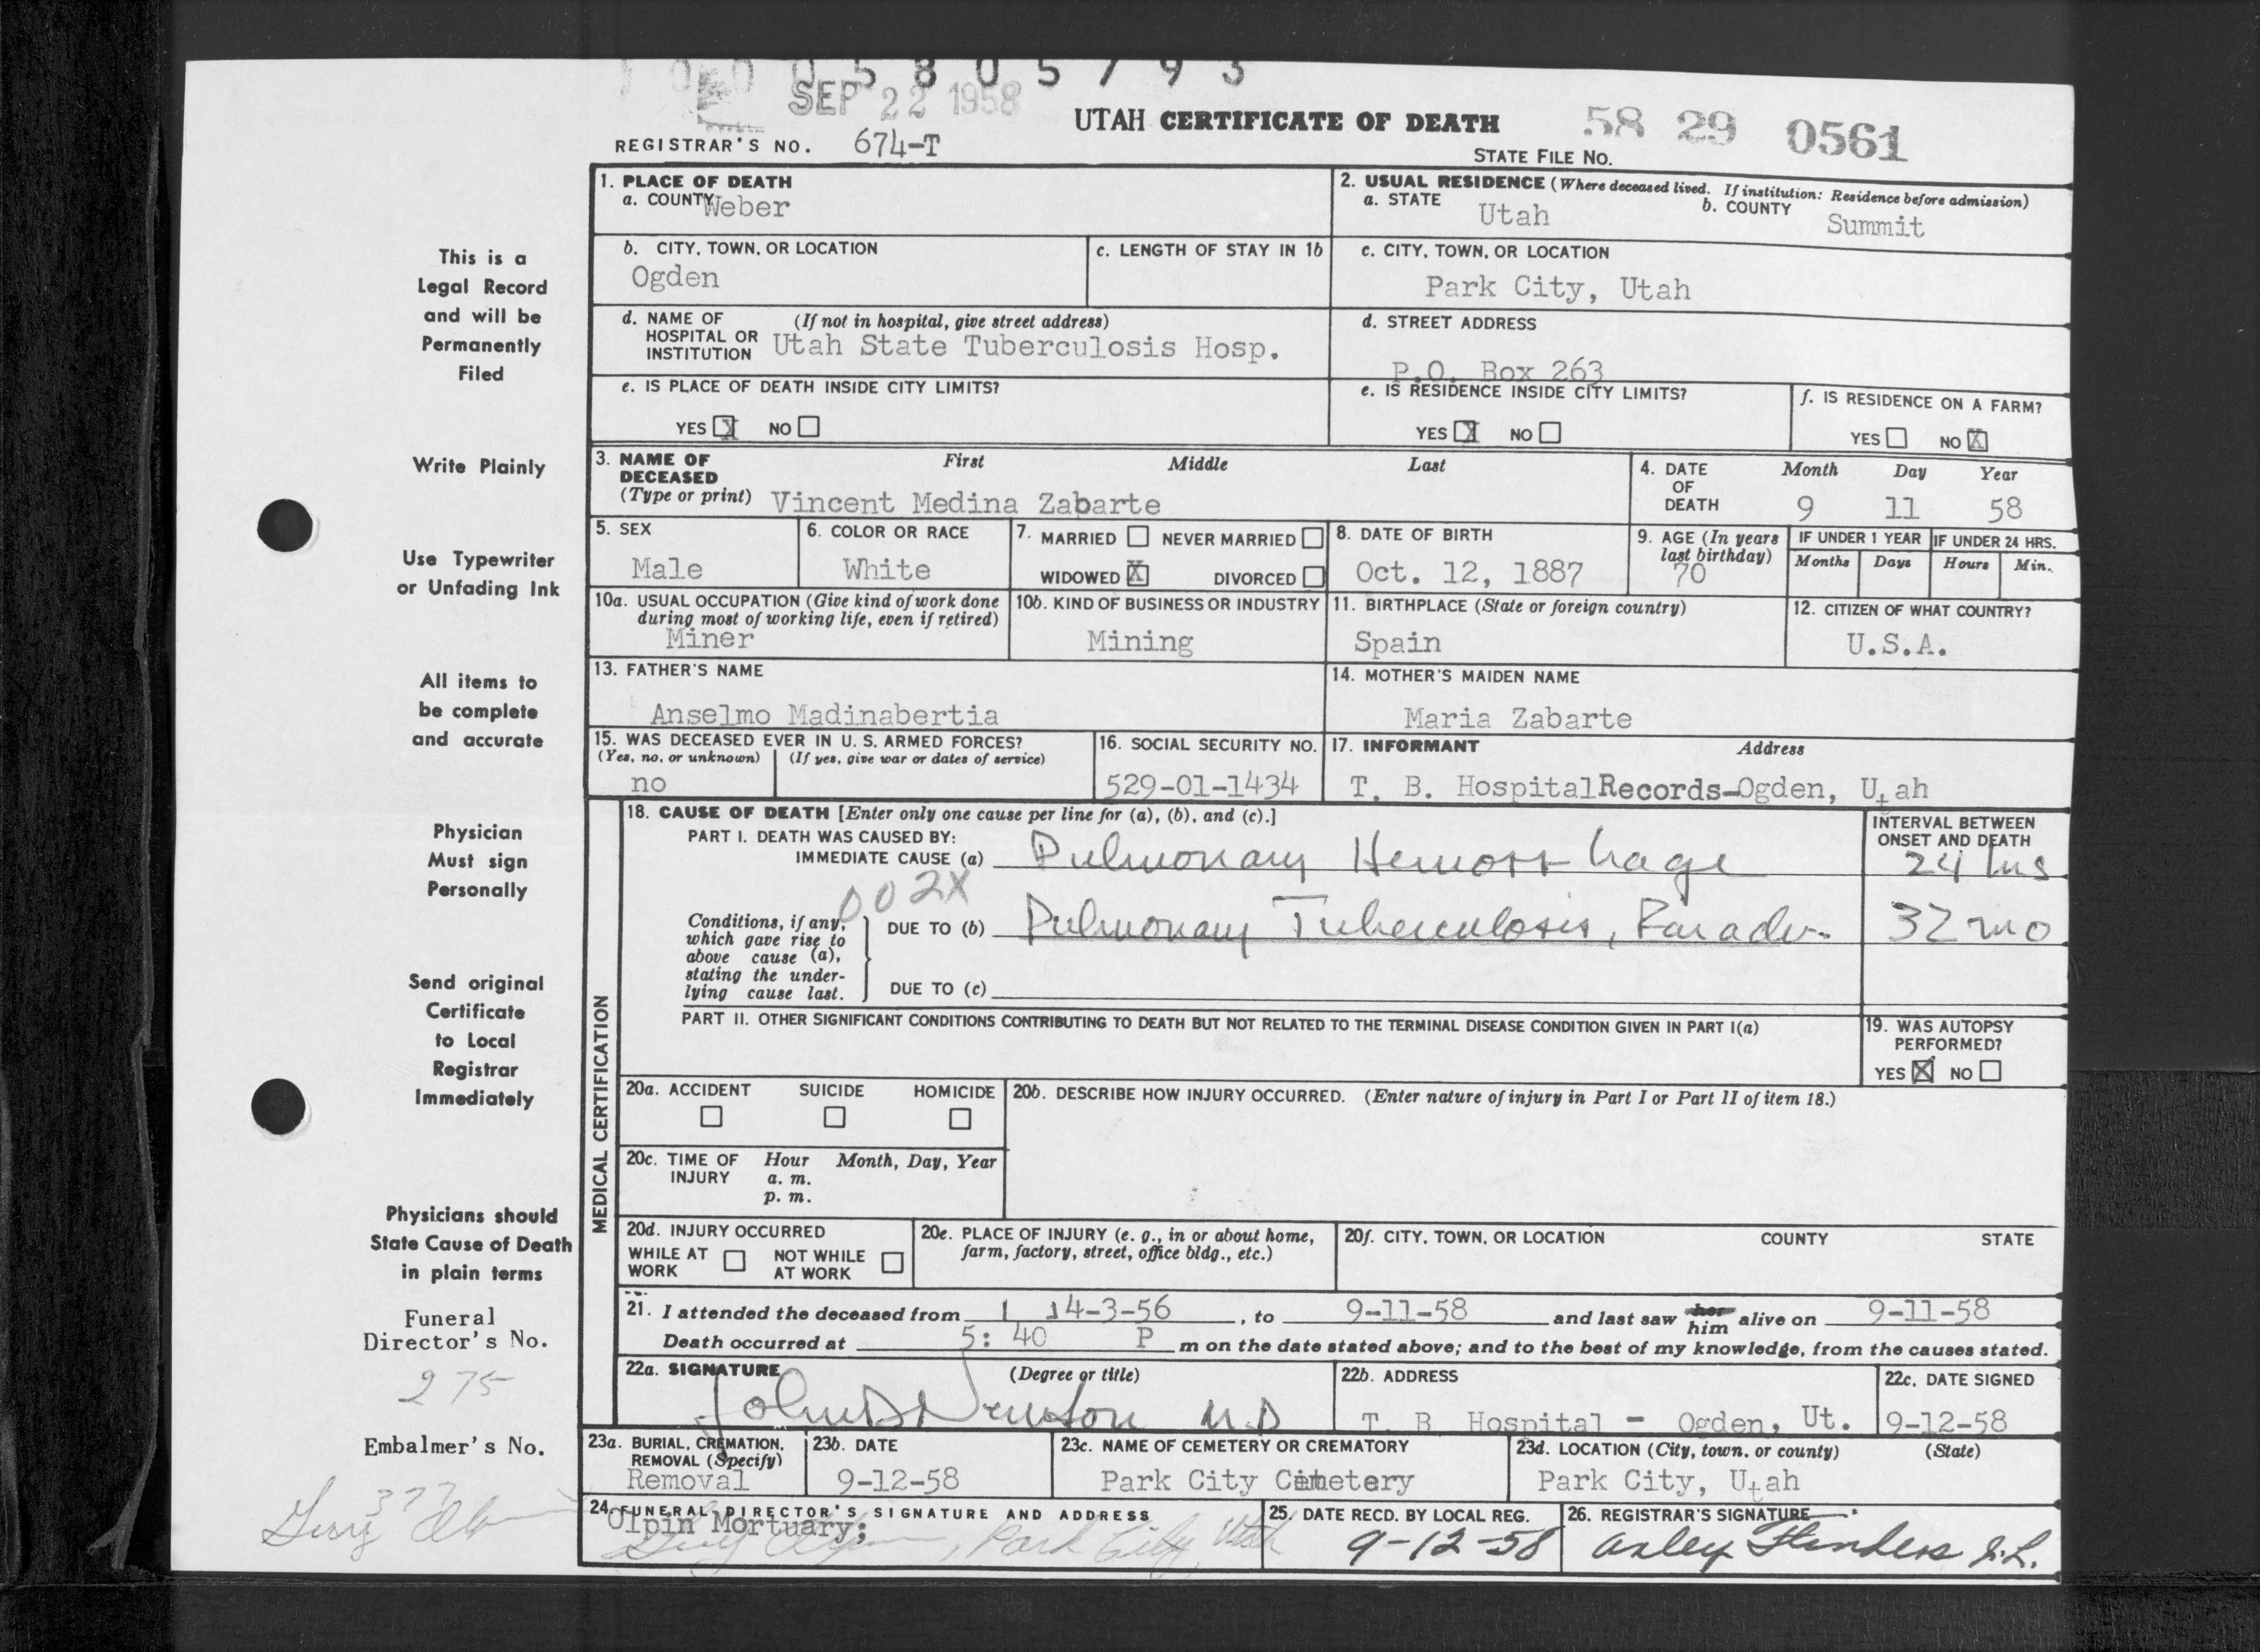 10 0 0 5 8 0 5 7 9 3
SEP 22 1958
UTAH CERTIFICATE OF DEATH
58 29 0561
REGISTRAR'S NO. 674-T
STATE FILE NO.
1. PLACE OF DEATH
a. COUNTY Weber
2. USUAL RESIDENCE (Where deceased lived. If institution: Residence before admission)
a. STATE Utah b. COUNTY Summit
b. CITY, TOWN, OR LOCATION
Ogden
c. LENGTH OF STAY IN 1b
c. CITY, TOWN, OR LOCATION
Park City, Utah
d. NAME OF HOSPITAL OR INSTITUTION (If not in hospital, give street address)
Utah State Tuberculosis Hosp.
d. STREET ADDRESS
P.O. Box 263
e. IS PLACE OF DEATH INSIDE CITY LIMITS?
YES X NO
e. IS RESIDENCE INSIDE CITY LIMITS?
YES X NO
f. IS RESIDENCE ON A FARM?
YES NO X
3. NAME OF DECEASED (Type or print)
First Middle Last
Vincent Medina Zabarte
4. DATE OF DEATH
Month Day Year
9 11 58
5. SEX
Male
6. COLOR OR RACE
White
7. MARRIED NEVER MARRIED
WIDOWED X DIVORCED
8. DATE OF BIRTH
Oct. 12, 1887
9. AGE (In years last birthday)
70
IF UNDER 1 YEAR
Months Days
IF UNDER 24 HRS.
Hours Min.
10a. USUAL OCCUPATION (Give kind of work done during most of working life, even if retired)
Miner
10b. KIND OF BUSINESS OR INDUSTRY
Mining
11. BIRTHPLACE (State or foreign country)
Spain
12. CITIZEN OF WHAT COUNTRY?
U.S.A.
13. FATHER'S NAME
Anselmo Madinabertia
14. MOTHER'S MAIDEN NAME
Maria Zabarte
15. WAS DECEASED EVER IN U. S. ARMED FORCES?
(Yes, no, or unknown) (If yes, give war or dates of service)
no
16. SOCIAL SECURITY NO.
529-01-1434
17. INFORMANT Address
T. B. Hospital Records-Ogden, Utah
MEDICAL CERTIFICATION
18. CAUSE OF DEATH [Enter only one cause per line for (a), (b), and (c).]
PART I. DEATH WAS CAUSED BY:
IMMEDIATE CAUSE (a) Pulmonary Hemorrhage
INTERVAL BETWEEN ONSET AND DEATH
24 hrs
002X
Conditions, if any, which gave rise to above cause (a), stating the underlying cause last.
DUE TO (b) Pulmonary Tuberculosis, Far adv.
32 mo
DUE TO (c)
PART II. OTHER SIGNIFICANT CONDITIONS CONTRIBUTING TO DEATH BUT NOT RELATED TO THE TERMINAL DISEASE CONDITION GIVEN IN PART I(a)
19. WAS AUTOPSY PERFORMED?
YES X NO
20a. ACCIDENT SUICIDE HOMICIDE
20b. DESCRIBE HOW INJURY OCCURRED. (Enter nature of injury in Part I or Part II of item 18.)
20c. TIME OF INJURY Hour Month, Day, Year
a. m.
p. m.
20d. INJURY OCCURRED
WHILE AT WORK NOT WHILE AT WORK
20e. PLACE OF INJURY (e. g., in or about home, farm, factory, street, office bldg., etc.)
20f. CITY, TOWN, OR LOCATION COUNTY STATE
21. I attended the deceased from 14-3-56, to 9-11-58 and last saw her him alive on 9-11-58
Death occurred at 5: 40 P m on the date stated above; and to the best of my knowledge, from the causes stated.
22a. SIGNATURE (Degree or title)
John D Newton M.D
22b. ADDRESS
T. B Hospital - Ogden, Ut.
22c. DATE SIGNED
9-12-58
23a. BURIAL, CREMATION, REMOVAL (Specify)
Removal
23b. DATE
9-12-58
23c. NAME OF CEMETERY OR CREMATORY
Park City Cemetery
23d. LOCATION (City, town, or county) (State)
Park City, Utah
24. FUNERAL DIRECTOR'S SIGNATURE AND ADDRESS
Olpin Mortuary;
Park City, Utah
25. DATE RECD. BY LOCAL REG.
9-12-58
26. REGISTRAR'S SIGNATURE
Flinders
This is a
Legal Record
and will be
Permanently
Filed
Write Plainly
Use Typewriter
or Unfading Ink
All items to
be complete
and accurate
Physician
Must sign
Personally
Send original
Certificate
to Local
Registrar
Immediately
Physicians should
State Cause of Death
in plain terms
Funeral
Director's No.
275
Embalmer's No.
377